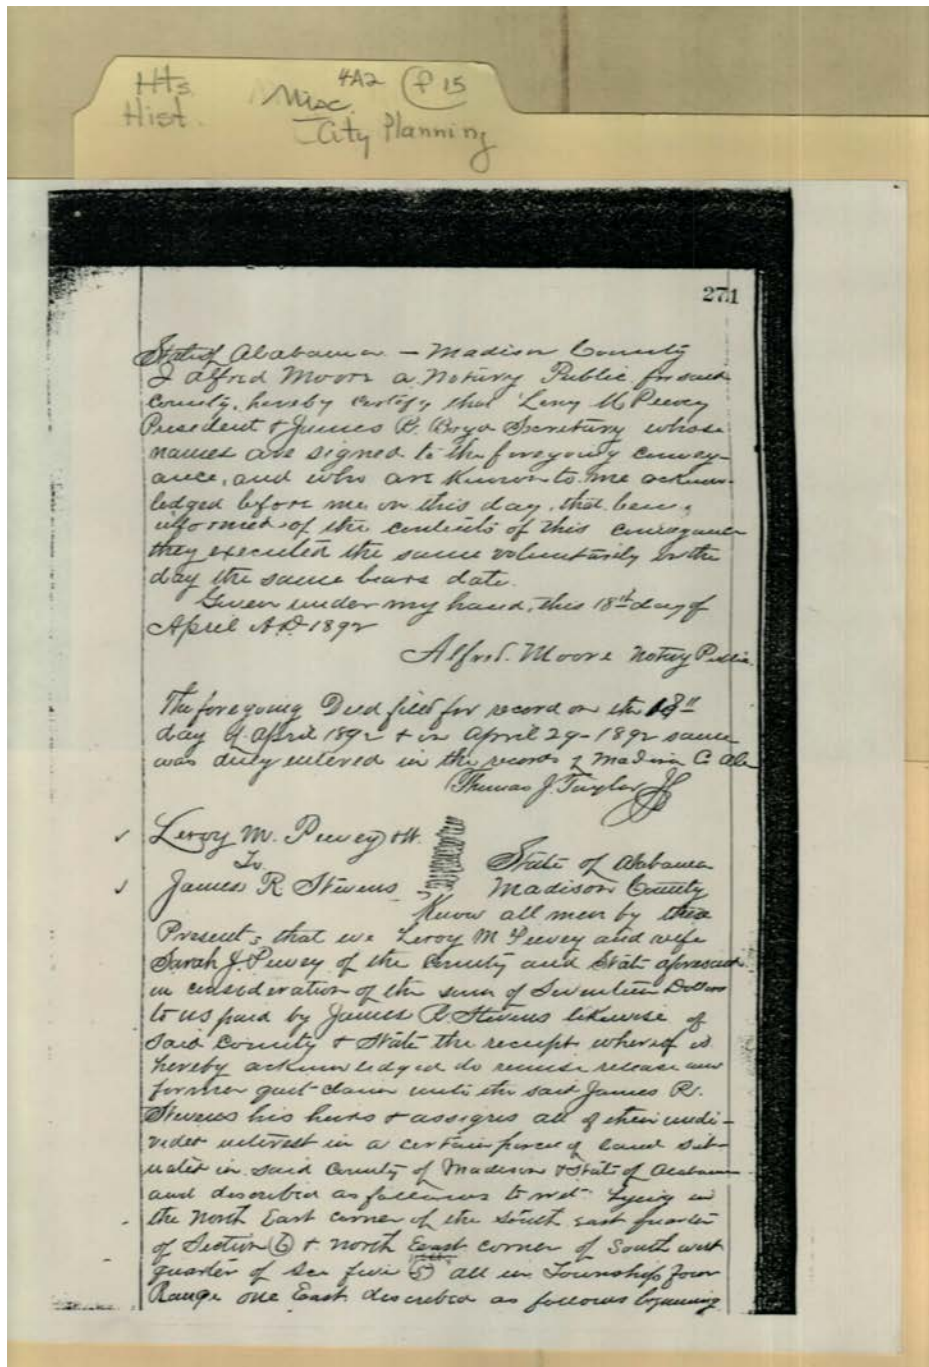 Hts 4A2 P 15
Hist. Misc.
City Planning
271
State of Alabama - Madison County
I Alfred Moore a Notary Public for said
County, hereby certify that Leroy M Peevey
President & James B. Boyd Secretary whose
names are signed to the foregoing convey-
ance, and who are known to me acknow-
ledged before me on this day, that being
informed of the contents of this conveyance
they executed the same voluntarily on the
day the same bears date.
Given under my hand, this 18th day of
April A.D. 1892
Alfred. Moore Notary Public
The foregoing Deed filed for record on the 18th
day of April 1892 & on April 29-1892 same
was duly entered in the records of Madison Co Ala
Thomas J. Taylor JP
Leroy M. Peevey & W.
To
James R Stevens
State of Alabama
Madison County
Know all men by these
Presents that we Leroy M Peevey and wife
Sarah J. Peevey of the County and State aforesaid
in consideration of the sum of Seventeen Dollars
to us paid by James R Stevens likewise of
said County & State the receipt whereof is
hereby acknowledged do remise release and
forever quit claim unto the said James R.
Stevens his heirs & assigns all of their undi-
vided interest in a certain parcel of land sit-
uated in said County of Madison & State of Alabama
and described as follows to wit Lying in
the North East corner of the South east quarter
of Section (6) & north East corner of South west
quarter of Sec five (5) all in Township four
Range one East described as follows beginning